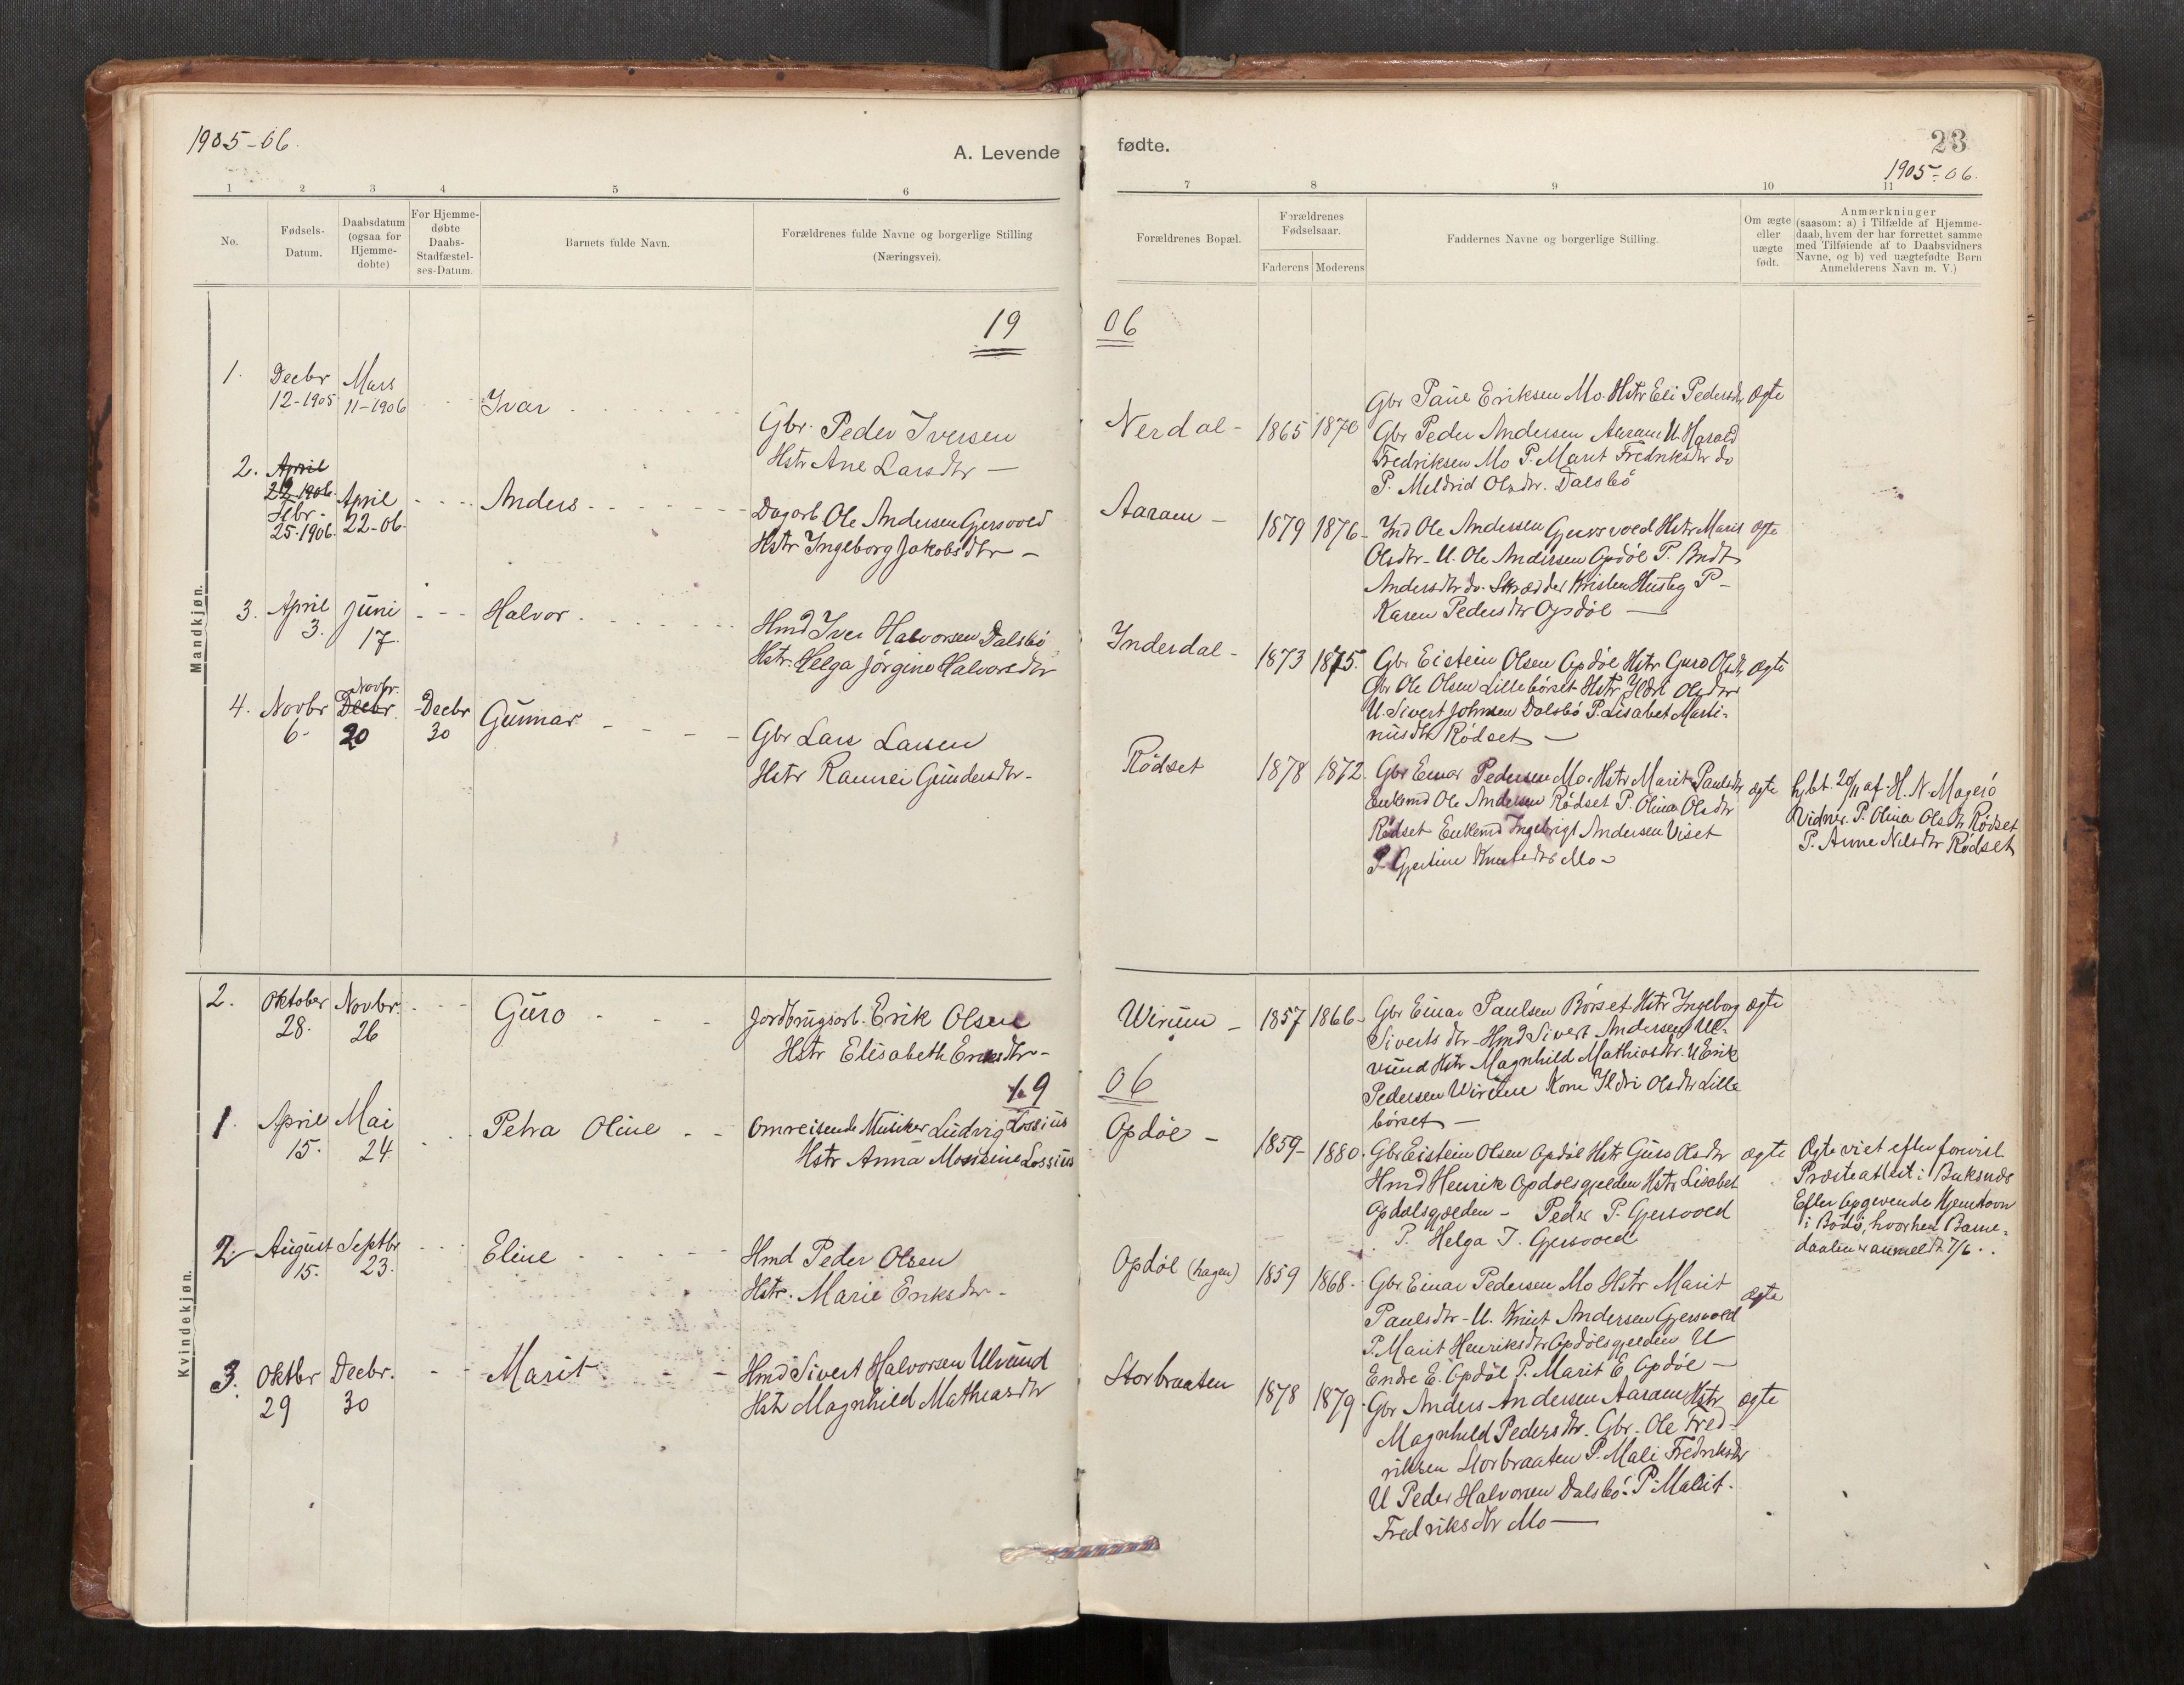 1905-06.
A. Levende
1 2 3 4 5 6
No.
Fødsels-
Datum.
Daabsdatum
(ogsaa for
Hjemme-
døbte)
For Hjemme-
døbte
Daabs-
Stadfæstel-
ses-Datum.
Barnets fulde Navn.
Forældrenes fulde Navne og borgerlige Stilling
(Næringsvei).
Mandkjøn.
19
1. Decbr Mars
12-1905 11-1906 Ivar
Gbr. Peder Iversen
Hstr Ane Larsdtr
2. April
22 1906
Febr. April Anders
25-1906. 22-06.
Dagarb Ole Andersen Gersvold
Hstr Ingeborg Jakobsdtr
3. April Juni Halvor
3. 17.
Hmd Iver Halvorsen Dalsbö
Hstr. Helga Jörgine Halvorsdtr
4. Novbr Decbr. Decbr Gunnar
Novbr.
6. 20 30
Gbr Lars Larsen
Hstr Rannei Gundersdtr
Kvindekjøn.
2. Oktober Novbr. Guro
28. 26
Jordbrugsarb. Erik Olsen
Hstr Elisabeth Eriksdtr
19
1. April Mai Petra Oline
15. 24
Omreisende Musiker Ludvig Lossius
Hstr Anna Lossius
2. August Septbr Eline
15. 23.
Hmd Peder Olsen
Hstr. Marie Eriksdtr
3. Oktbr Decbr. Marit
29 30
Hmd Sivert Halvorsen Ulvund
Hstr Magnhild Mathiasdtr
fødte.
23
1905-06.
7 8 9 10 11
Forældrenes Bopæl.
Forældrenes
Fødselsaar.
Faderens Moderens
Faddernes Navne og borgerlige Stilling.
Om ægte
eller
uægte
født.
Anmærkninger
(saasom: a) i Tilfælde af Hjemme-
daab, hvem der har forrettet samme
med Tilføiende af to Daabsvidners
Navne, og b) ved uægtefødte Børn
Anmelderens Navn m. V.)
06
Nerdal 1865 1870
Gbr Paul Eriksen Mo. Hstr Eli Pedersdtr Ægte
Gbr Peder Andersen Aaram U. Harald
Fredriksen Mo P. Marit Fredriksdtr do
P. Meldrid Olsdtr. Dalsbö
Aaram 1879 1876
Ind Ole Andersen Gjersvold Hstr Marit ægte
Olsdtr. U. Ole Andersen Opdöl P. Brit
Andersdtr do. Skrædder Kristen Husby P
Karen Pedersdtr Opdöl
Inderdal 1873 1875.
Gbr Eistein Olsen Opdöl Hstr Guro Olsdtr ægte
Gbr Ole Olsen Lillebörset Hstr Ildri Olsdtr
U. Sivert Johnsen Dalsbö P. Lisabet Marti-
nusdtr Rödset
Rödset 1878 1872.
Gbr Einar Pedersen Mo. Hstr Marit Paulsdtr ægte
Enkemd Ole Andersen Rödset P. Olina Olsdtr
Rödset Enkemd Ingebrigt Andersen Viset
P. Gjertine Knutsdtr Mo
hjbt. 20/11 af H. N. Magerö
Vidner. P. Olina Olsdtr Rödset
P. Anne Nilsdtr Rödset
Wirum 1857 1866
Gbr Einar Paulsen Börset Hstr Ingeborg ægte
Sivertsdtr Hmd Sivert Andersen Ul-
vund Hstr Magnhild Mathiasdtr. U Erik
Pedersen Wirum Kone Ildri Olsdtr Lille
börset
06
Opdöl 1859 1880.
Gbr Eistein Olsen Opdöl Hstr Guro Olsdtr ægte
Hmd Henrik Opdolsgjelden Hstr Lisabet
Opdolsgjelden Peder P. Gjersvold
P. Helga J. Gjersvold
Ægteviet efter forevist
Presteattest i Buksnæs
Efter Opgivende Hjemstavn
i Bodö, hvorhen Barne-
daaben er anmeldt 7/6.
Opdöl (hagen) 1859 1868.
Gbr Einar Pedersen Mo Hstr Marit
Paulsdtr U. Knut Andersen Gjersvold ægte
P. Marit Henriksdtr Opdölsgjelden U
Endre E. Opdöl P. Marit E Opdöl
Storbraaten 1878 1879.
Gbr Anders Andersen Aaram Hstr ægte
Magnhild Pedersdtr. Gbr. Ole Fred-
riksen Storbraaten P. Mali Fredriksdtr
U Peder Halvorsen Dalsbö. P. Marit
Fredriksdtr Mo